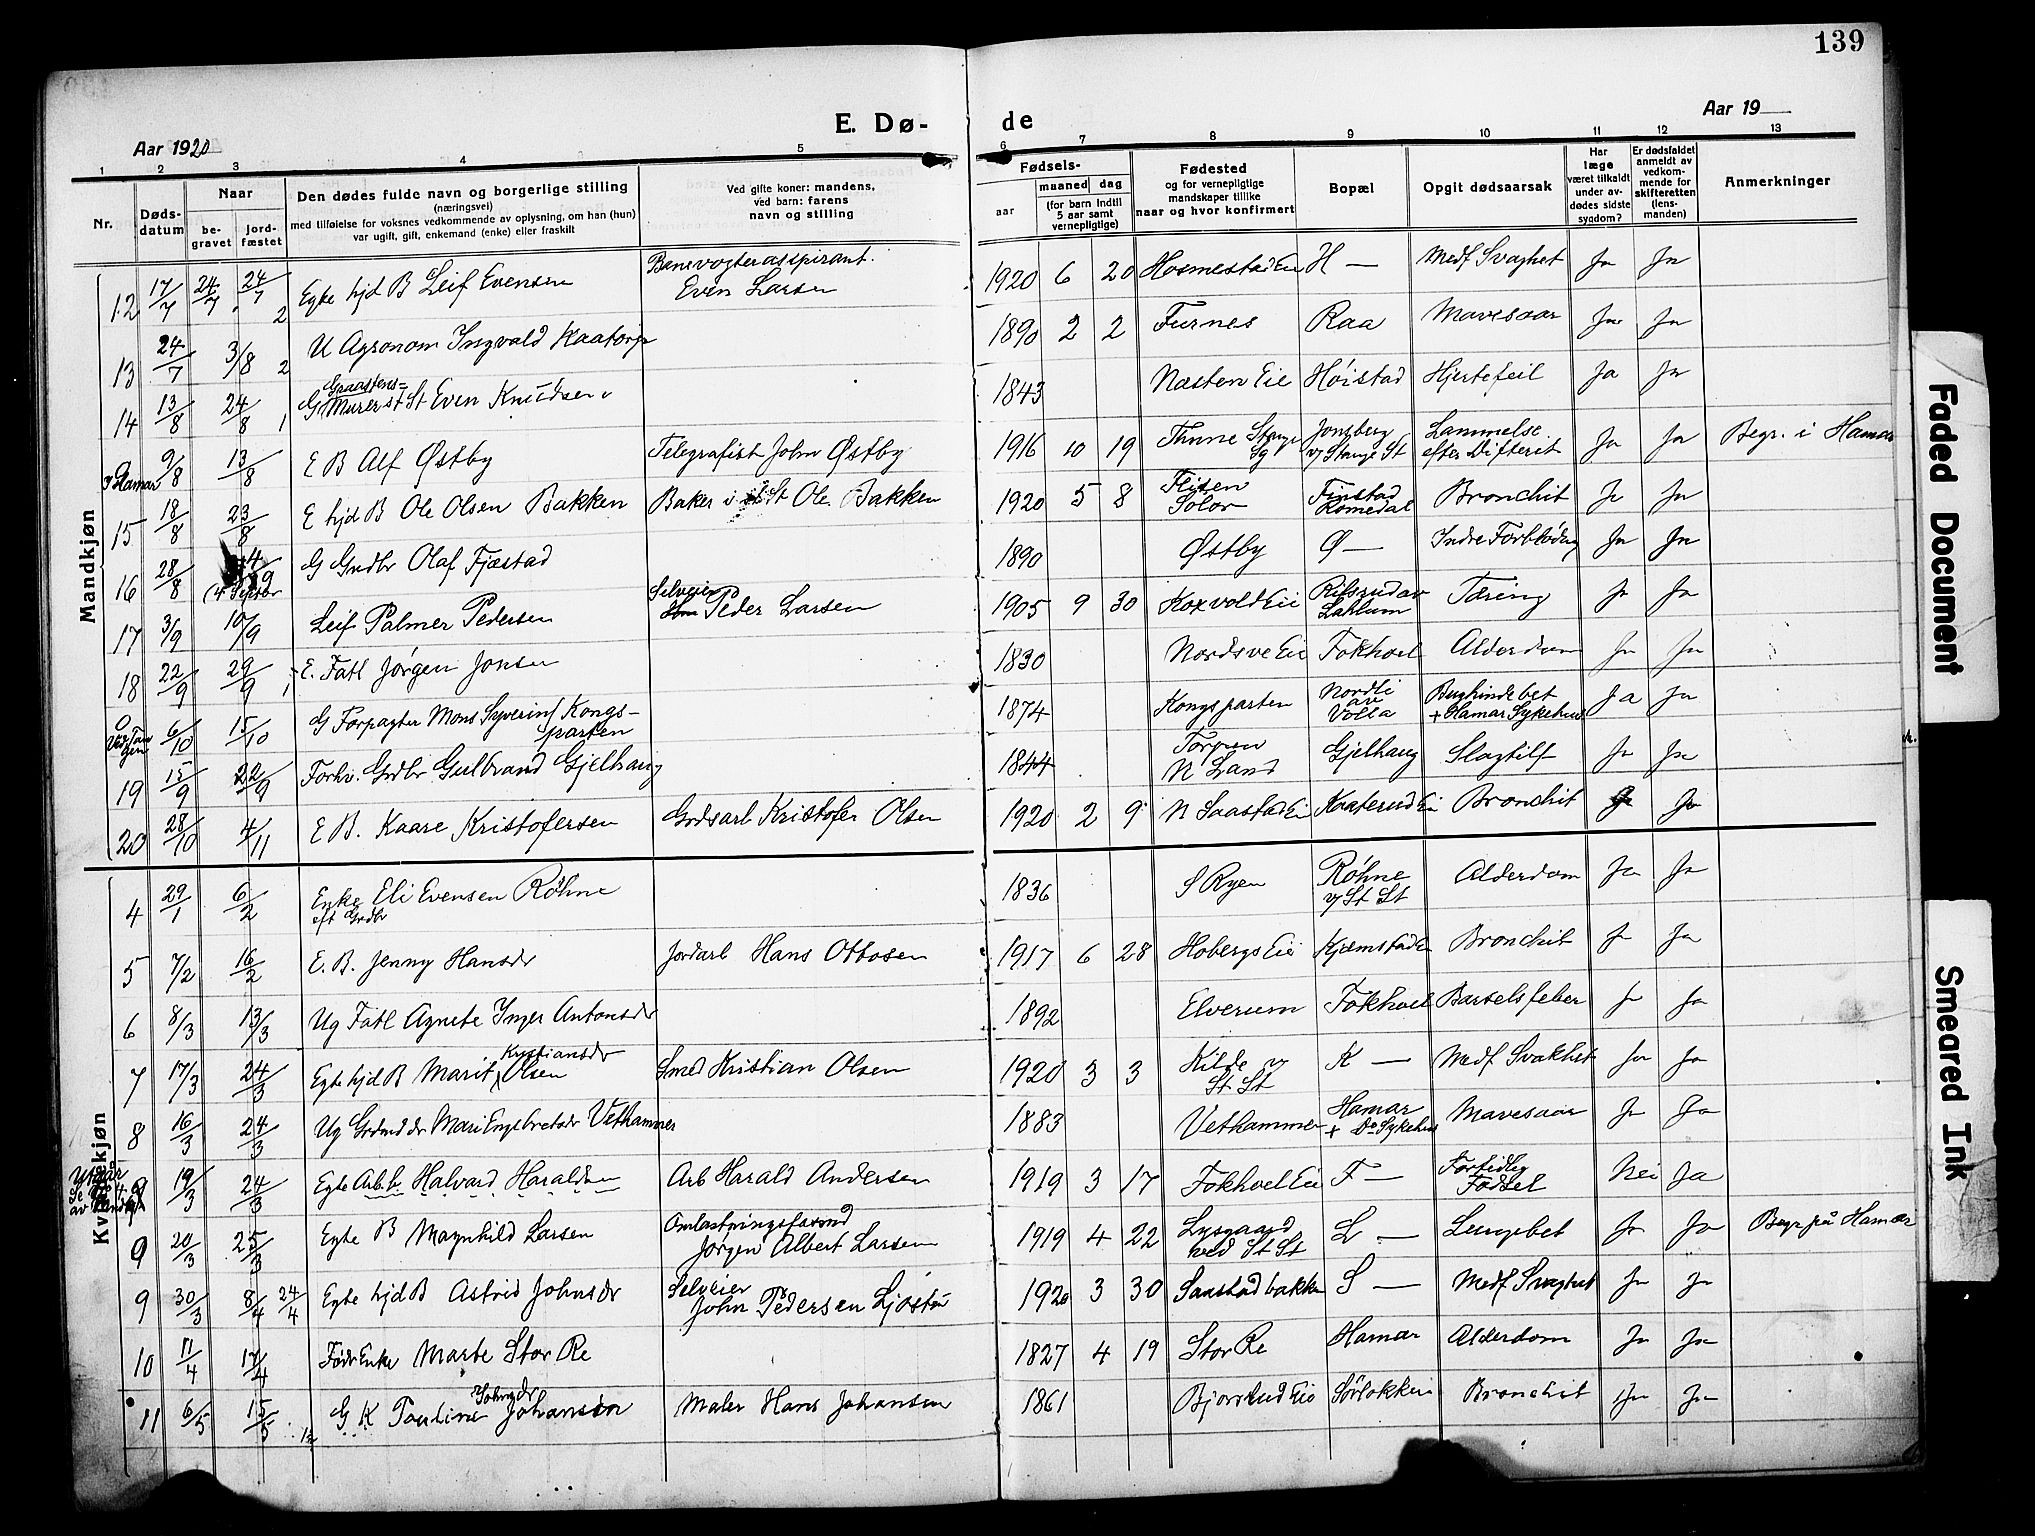 139
E. Dø- de
Aar 1920
Aar 19
1 2 3 4 5 6 7 8 9 10 11 12 13
Nr.
Døds-
datum
Naar
be-
gravet
jord-
fæstet
Den dødes fulde navn og borgerlige stilling
(næringsvei)
med tilføielse for voksnes vedkommende av oplysning, om han (hun)
var ugift, gift, enkemand (enke) eller fraskilt
Ved gifte koner: mandens,
ved barn: farens
navn og stilling
Fødsels-
aar
maaned
dag
(for barn indtil
5 aar samt
vernepligtige)
Fødested
og for vernepligtige
mandskaper tillike
naar og hvor konfirmert
Bopæl
Opgit dødsaarsak
Har
læge
været tilkaldt
under av-
dødes sidste
sygdom?
Er dødsfaldet
anmeldt av
vedkom-
mende for
skifteretten
(lens-
manden)
Anmerkninger
Mandkjøn
12 17/7 24/7 24/7 2 Egte hjd B Leif Evensen Banevogteraspirant. Even Larsen 1920 6 20 Hosmestad Eie H — Medf Svaghet Ja Ja
13 24/7 3/8 2 U Agronom Ingvald Kaatorp 1890 2 2 Furnes Raa Mavesaar Ja Ja
14 13/8 24/8 1 G Graastens- Murer st St Even Knudsen 1843 Næsten Eie Høistad Hjertefeil Ja Ja
Hamar 9/8 13/8 E B Alf Østby Telegrafist John Østby 1916 10 19 Thune Stange Sg Jonsberg v/ Stange St Lammelse efter Difterit Ja Ja Begr. i Hamar
15 18/8 23/8 E hjd B Ole Olsen Bakken Baker i St Ole Bakken 1920 5 8 Flisen Solør Finstad Romedal Bronchit Ja Ja
16 28/8 G Grdbr Olaf Fjæstad 1890 Østby Ø — Indre Forblødng Ja Ja
17 3/9 10/9 Leif Palmer Pedersen Selveier Peder Larsen 1905 9 30 Koxvold Eie Lahlum Tæring Ja Ja
18 22/9 29/9 1 E. Fatl Jørgen Jonsen 1830 Nordsve Eie Fokhoel Alderdom Ja Ja
0 Ved Tangen 6/10 15/10 G Forpagter Mons Syverins Kongs- parten 1874 Kongsparten Nordli av Volla Bughindebet + Hamar Sykehus Ja Ja
19 15/9 22/9 Forhv. Grdbr Gulbrand Gjelhaug 1844 Torpen N Land Gjelhaug Slagtilf Ja Ja
20 28/10 4/11 E B. Kaare Kristofersen Grdsarb Kristofer Olsen 1920 2 9 N Saastad Ei Kaaterud Ei Bronchit Ja Ja
Kvindekjøn
4 29/1 6/2 Enke Eli Evensen Røhne eft Grdbr 1836 S Ryen Røhne v/ St St Alderdom Ja Ja
5 7/2 16/2 E. B. Jenny Hansdr Jordarb Hans Ottosen 1917 6 28 Hobergs Eie Kjemstad E Bronchit Ja Ja
6 8/3 13/3 Ug Fatl Agnete Inger Antonsdr 1892 Elverum Fokhoel Barselsfeber Ja Ja
7 17/3 24/3 Egte hjd B Marit Kristiansdr Olsen Smed Kristian Olsen 1920 3 3 Kilde v/ St. St K — Medf Svakhet Ja Ja
8 16/3 24/3 Ug Grdmd dr Mari Engebretsdr Vethammer 1883 Vethammer Hamar + Do Sykehus Mavesaar Ja Ja
Utgaar 9 19/3 24/3 Egte Arb. b. Halvard Haraldsen Arb Harald Andersen 1919 3 17 Fokhoel Eie F — Fortidlig Fødsel Nei Ja
9 20/3 25/3 Egte B Magnhild Larsen Omlastningsformd Jørgen Albert Larsen 1919 4 22 Lysgaard ved St St L — Lungebet Ja Ja Begr på Hamar
9 30/3 8/4 24/4 Egte hjd B Astrid Johnsdr Selveier John Pedersen Ljøstu 1920 3 30 Saastadbakke S — Medf Svaghet Ja Ja
10 11/4 17/4 Fødr Enke Marte Stor Re 1827 4 19 Stor Re Hamar Alderdom Ja Ja
11 6/5 15/5 G K Pauline Johnsdr Johansen Maler Hans Johansen 1861 Bjørklud Eie Sørlokken Bronchit Ja Ja
Faded Document
Smeared Ink